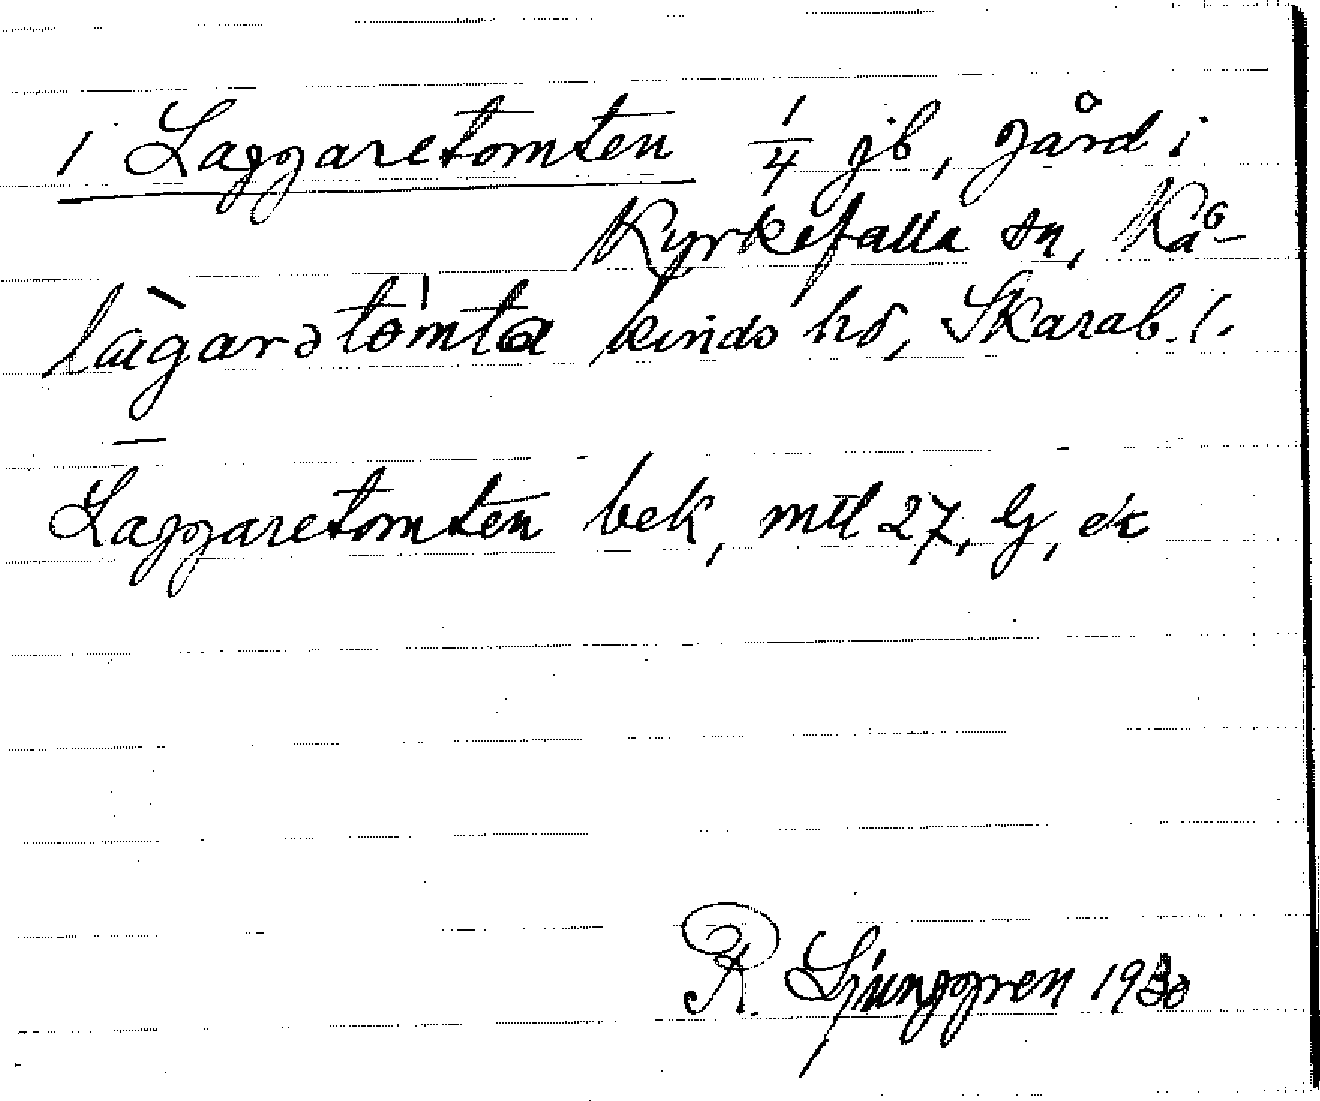 1 Laggaretomten 1/4 jb, gård i
Kyrkefalla sn, Kå-
làgarətómta kinds hd, Skarab. l.
Laggaretomten bek, mtl 27, G, ek
R. Ljunggren